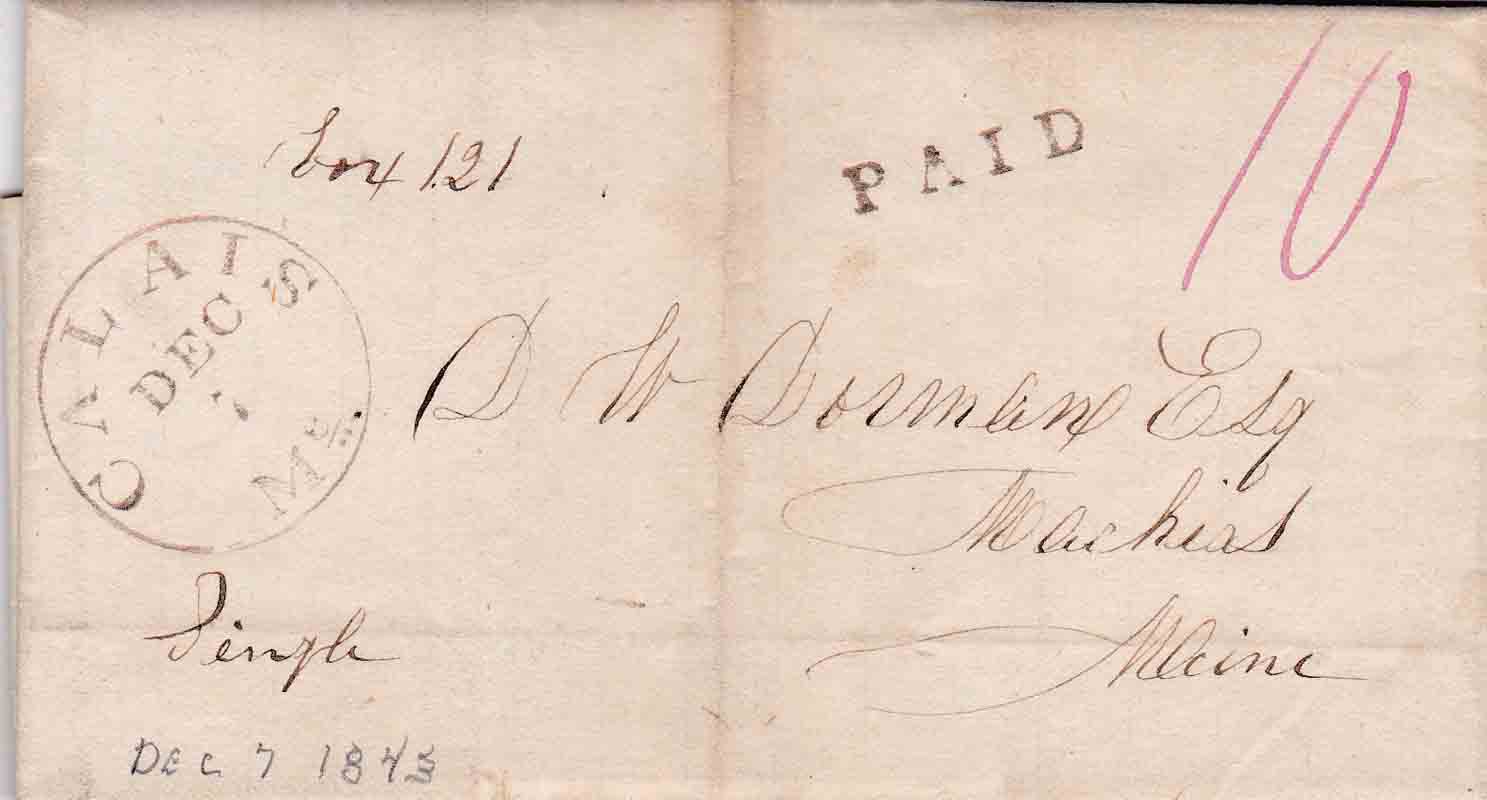 box 121
PAID
10
CALAIS Me.
DEC 7
D W Dorman Esq
Machias
Maine
Single
DEC 7 1843